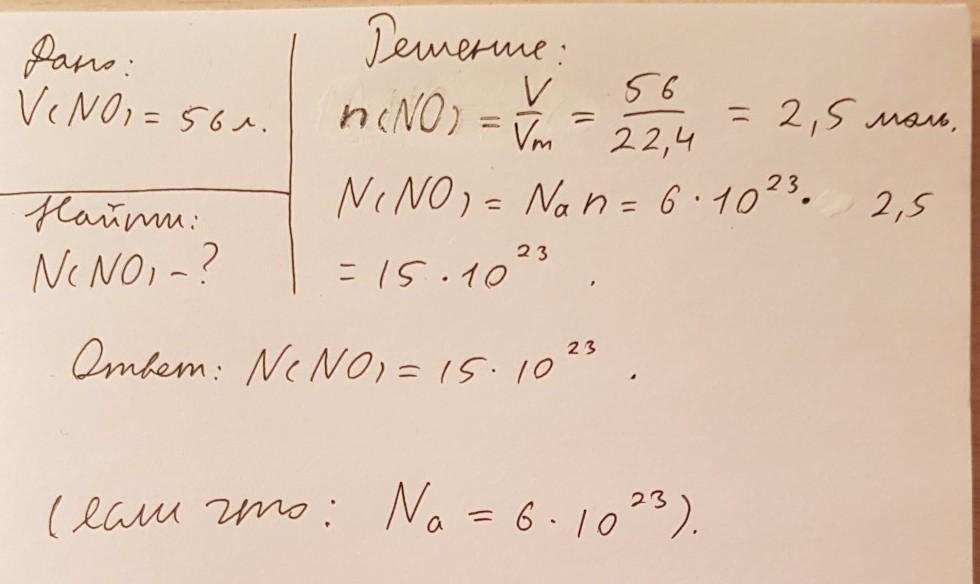 Дано:
V(NO) = 56 л.
Найти:
N(NO) - ?
Решение:
n(NO) = V/Vm = 56/22,4 = 2,5 моль.
N(NO) = Na n = 6 · 10²³ · 2,5
= 15 · 10²³ .
Ответ: N(NO) = 15 · 10²³ .
(если что: Na = 6 · 10²³).